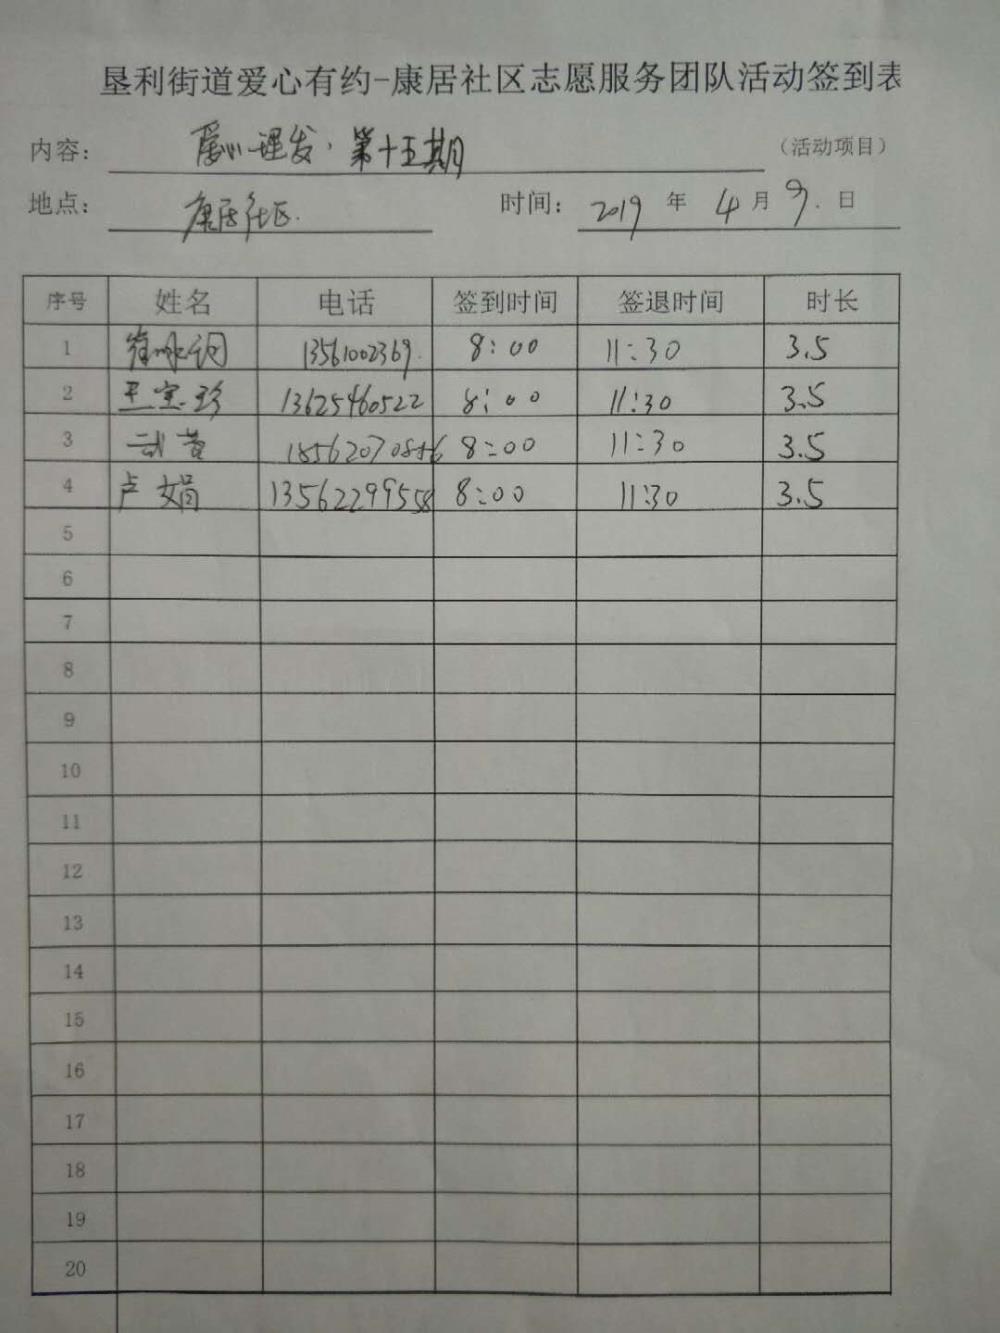 垦利街道爱心有约-康居社区志愿服务团队活动签到表
内容： 爱心理发，第十五期 （活动项目）
地点： 康居社区. 时间： 2019 年 4 月 9. 日
序号 姓名 电话 签到时间 签退时间 时长
1 13561002369. 8:00 11:30 3.5
2 王宝珍 13625460522 8:00 11:30 3.5
3 8:00 11:30 3.5
4 卢娟 13562299558 8:00 11:30 3.5
5
6
7
8
9
10
11
12
13
14
15
16
17
18
19
20